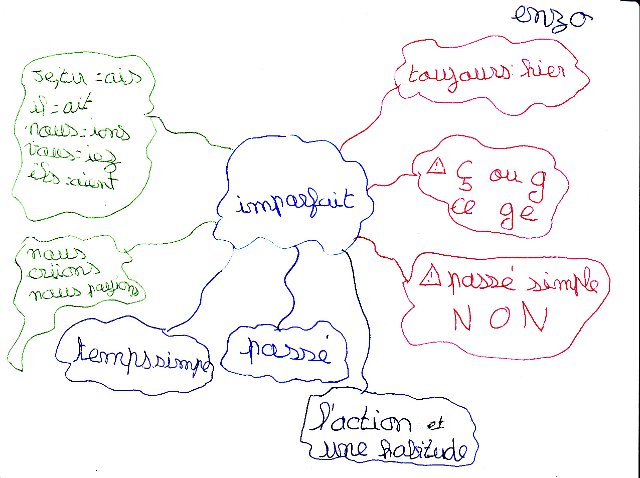 enzo
je, tu = ais
il = ait
nous = ions
vous = iez
ils = aient
toujours : hier
imparfait
⚠ ç ou g
ce ge
nous
criions
nous payions
⚠ passé simple
NON
temps simple
passé
l'action et
une habitude